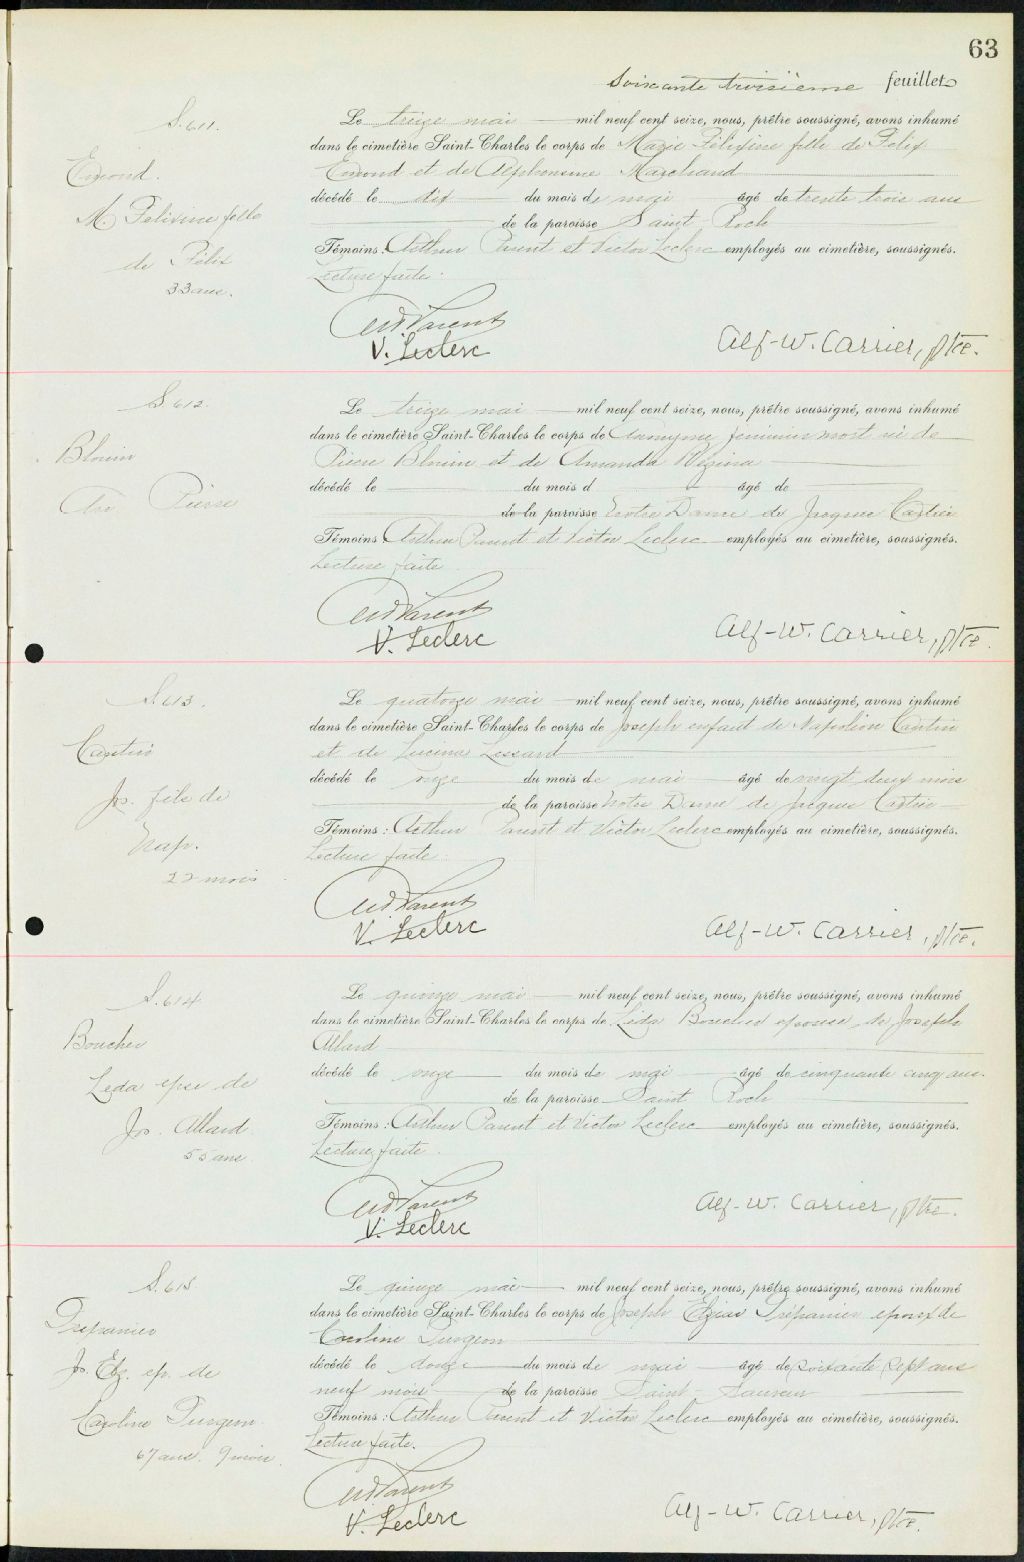 63
Soixante troisième feuillet
S. 611.
Emond.
M. Felixine fille
de Félix
33 ans.
Le treize mai mil neuf cent seize, nous, prêtre soussigné, avons inhumé
dans le cimetière Saint-Charles le corps de Marie Félixine fille de Felix
Emond et de Alphonsine Marchand
décédé le dix du mois de mai âgé de trente trois ans
de la paroisse Saint-Roch
Témoins: Arthur Parent et Victor Leclerc employés au cimetière, soussignés.
Lecture faite.
Art Parent
V. Leclerc
Alf-W. Carrier, ptre.
S. 612.
Blouin
An Pierre
Le treize mai mil neuf cent seize, nous, prêtre soussigné, avons inhumé
dans le cimetière Saint-Charles le corps de Anonyme feminin mort né de
Pierre Blouin et de Amanda Vézina
décédé le du mois d âgé de
de la paroisse Notre Dame de Jacques Cartier
Témoins Arthur Parent et Victor Leclerc employés au cimetière, soussignés.
Lecture faite
Art Parent
V. Leclerc
Alf-W. Carrier, ptre.
S. 613.
Cantin
Jos. fils de
Nap.
22 mois
Le quatorze mai mil neuf cent seize, nous, prêtre soussigné, avons inhumé
dans le cimetière Saint-Charles le corps de Joseph enfant de Napoléon Cantin
et de Lucina Lessard
décédé le onze du mois de mai âgé de vingt deux mois
de la paroisse Notre Dame de Jacques Cartier
Témoins: Arthur Parent et Victor Leclerc employés au cimetière, soussignés.
Lecture faite.
Art Parent
V. Leclerc
Alf-W. Carrier, ptre.
S. 614
Boucher
Leda epse de
Jos. Allard
55 ans
Le quinze mai mil neuf cent seize, nous, prêtre soussigné, avons inhumé
dans le cimetière Saint-Charles le corps de Léda Boucher epouse de Joseph
Allard
décédé le onze du mois de mai âgé de cinquante cinq ans.
de la paroisse Saint Roch
Témoins: Arthur Parent et Victor Leclerc employés au cimetière, soussignés.
Lecture faite.
Art Parent
V. Leclerc
Alf-W. Carrier, ptre.
S. 615
Trepanier
Js. Elz. ep. de
Caroline Turgeon
67 ans. 9 mois.
Le quinze mai mil neuf cent seize, nous, prêtre soussigné, avons inhumé
dans le cimetière Saint-Charles le corps de Joseph Elzear Trépanier epoux de
Caroline Turgeon
décédé le douze du mois de mai âgé de soixante sept ans
neuf mois de la paroisse Saint-Sauveur
Témoins: Arthur Parent et Victor Leclerc employés au cimetière, soussignés.
Lecture faite.
Art Parent
V. Leclerc
Alf-W. Carrier, ptre.